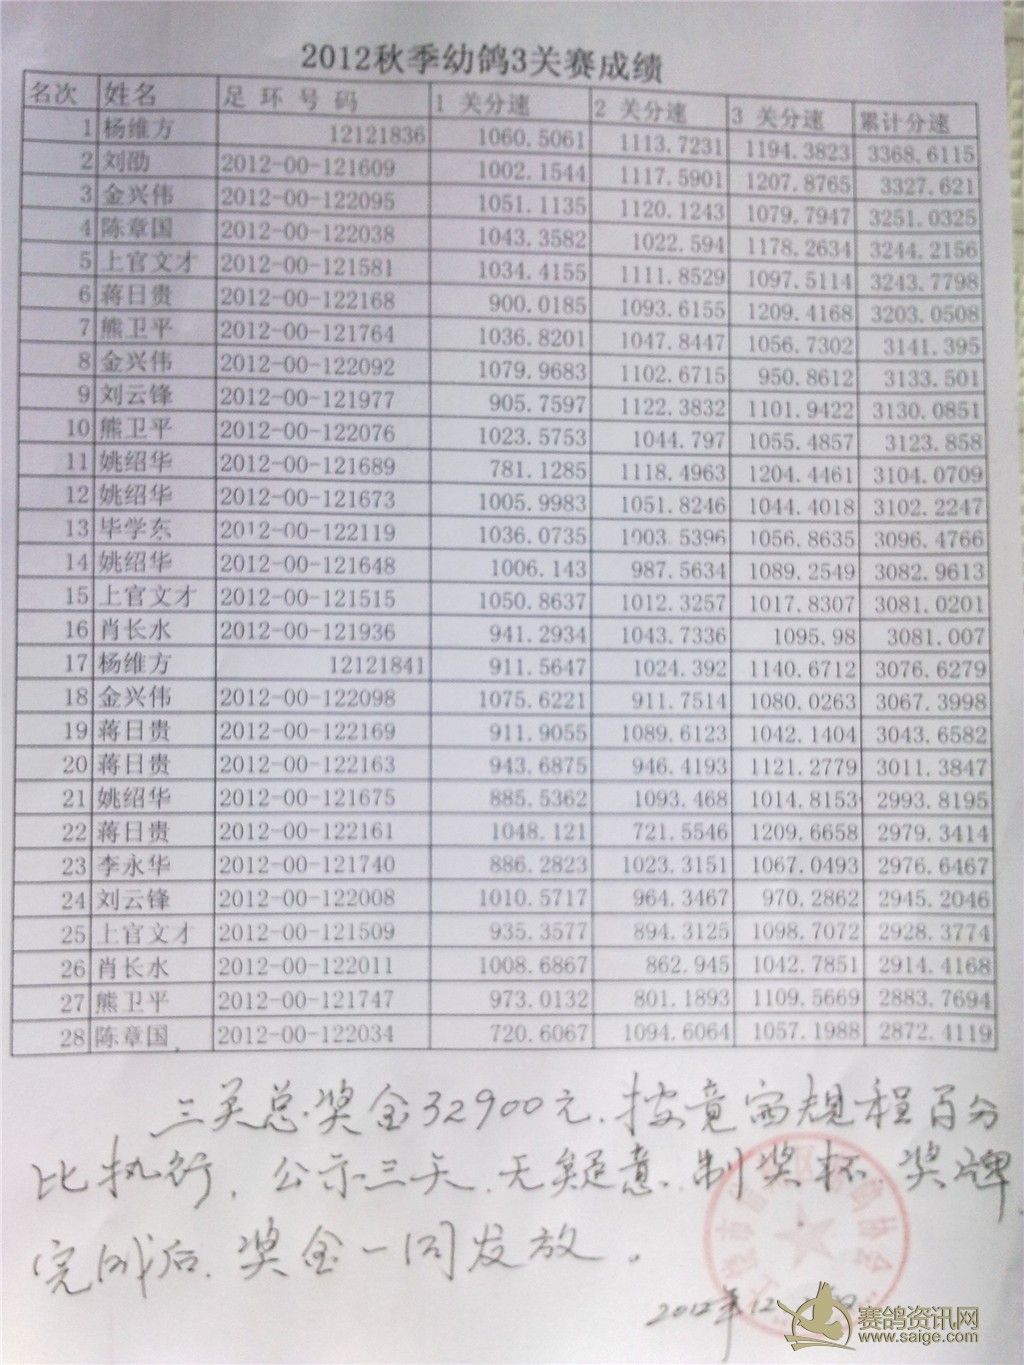 2012秋季幼鸽3关赛成绩
名次 姓名 足 环 号 码 1 关分速 2 关分速 3 关分速 累计分速
1 杨维方 12121836 1060.5061 1113.7231 1194.3823 3368.6115
2 刘劭 2012-00-121609 1002.1544 1117.5901 1207.8765 3327.621
3 金兴伟 2012-00-122095 1051.1135 1120.1243 1079.7947 3251.0325
4 陈章国 2012-00-122038 1043.3582 1022.594 1178.2634 3244.2156
5 上官文才 2012-00-121581 1034.4155 1111.8529 1097.5114 3243.7798
6 蒋日贵 2012-00-122168 900.0185 1093.6155 1209.4168 3203.0508
7 熊卫平 2012-00-121764 1036.8201 1047.8447 1056.7302 3141.395
8 金兴伟 2012-00-122092 1079.9683 1102.6715 950.8612 3133.501
9 刘云锋 2012-00-121977 905.7597 1122.3832 1101.9422 3130.0851
10 熊卫平 2012-00-122076 1023.5753 1044.797 1055.4857 3123.858
11 姚绍华 2012-00-121689 781.1285 1118.4963 1204.4461 3104.0709
12 姚绍华 2012-00-121673 1005.9983 1051.8246 1044.4018 3102.2247
13 毕学东 2012-00-122119 1036.0735 1003.5396 1056.8635 3096.4766
14 姚绍华 2012-00-121648 1006.143 987.5634 1089.2549 3082.9613
15 上官文才 2012-00-121515 1050.8637 1012.3257 1017.8307 3081.0201
16 肖长水 2012-00-121936 941.2934 1043.7336 1095.98 3081.007
17 杨维方 12121841 911.5647 1024.392 1140.6712 3076.6279
18 金兴伟 2012-00-122098 1075.6221 911.7514 1080.0263 3067.3998
19 蒋日贵 2012-00-122169 911.9055 1089.6123 1042.1404 3043.6582
20 蒋日贵 2012-00-122163 943.6875 946.4193 1121.2779 3011.3847
21 姚绍华 2012-00-121675 885.5362 1093.468 1014.8153 2993.8195
22 蒋日贵 2012-00-122161 1048.121 721.5546 1209.6658 2979.3414
23 李永华 2012-00-121740 886.2823 1023.3151 1067.0493 2976.6467
24 刘云锋 2012-00-122008 1010.5717 964.3467 970.2862 2945.2046
25 上官文才 2012-00-121509 935.3577 894.3125 1098.7072 2928.3774
26 肖长水 2012-00-122011 1008.6867 862.945 1042.7851 2914.4168
27 熊卫平 2012-00-121747 973.0132 801.1893 1109.5669 2883.7694
28 陈章国 2012-00-122034 720.6067 1094.6064 1057.1988 2872.4119
三关总奖金32900元.按竟賽规程百分
比执行，公示三天.无疑意.制奖杯.奖牌
完成后.奖金一同发放。
2012年12
赛鸽资讯网
www.saige.com